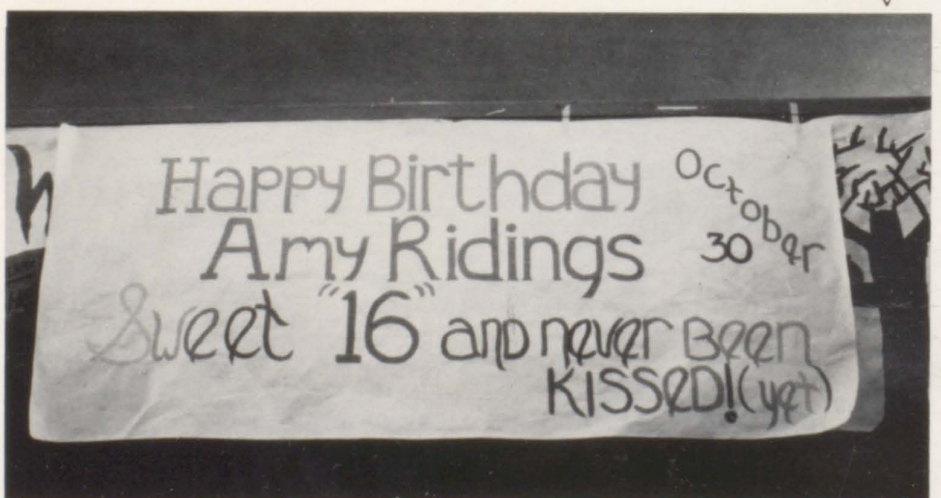 Happy Birthday
Amy Ridings
October
30
Sweet "16" and never Been
KISSED! (yet)